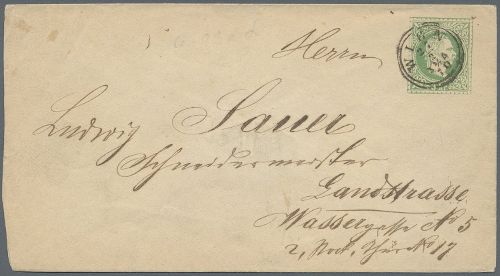 Herrn
WIEN
Ludwig Sauer
Schneidermeister
Landstrasse
Wassergasse No 5
2, Stock, Thür No 17